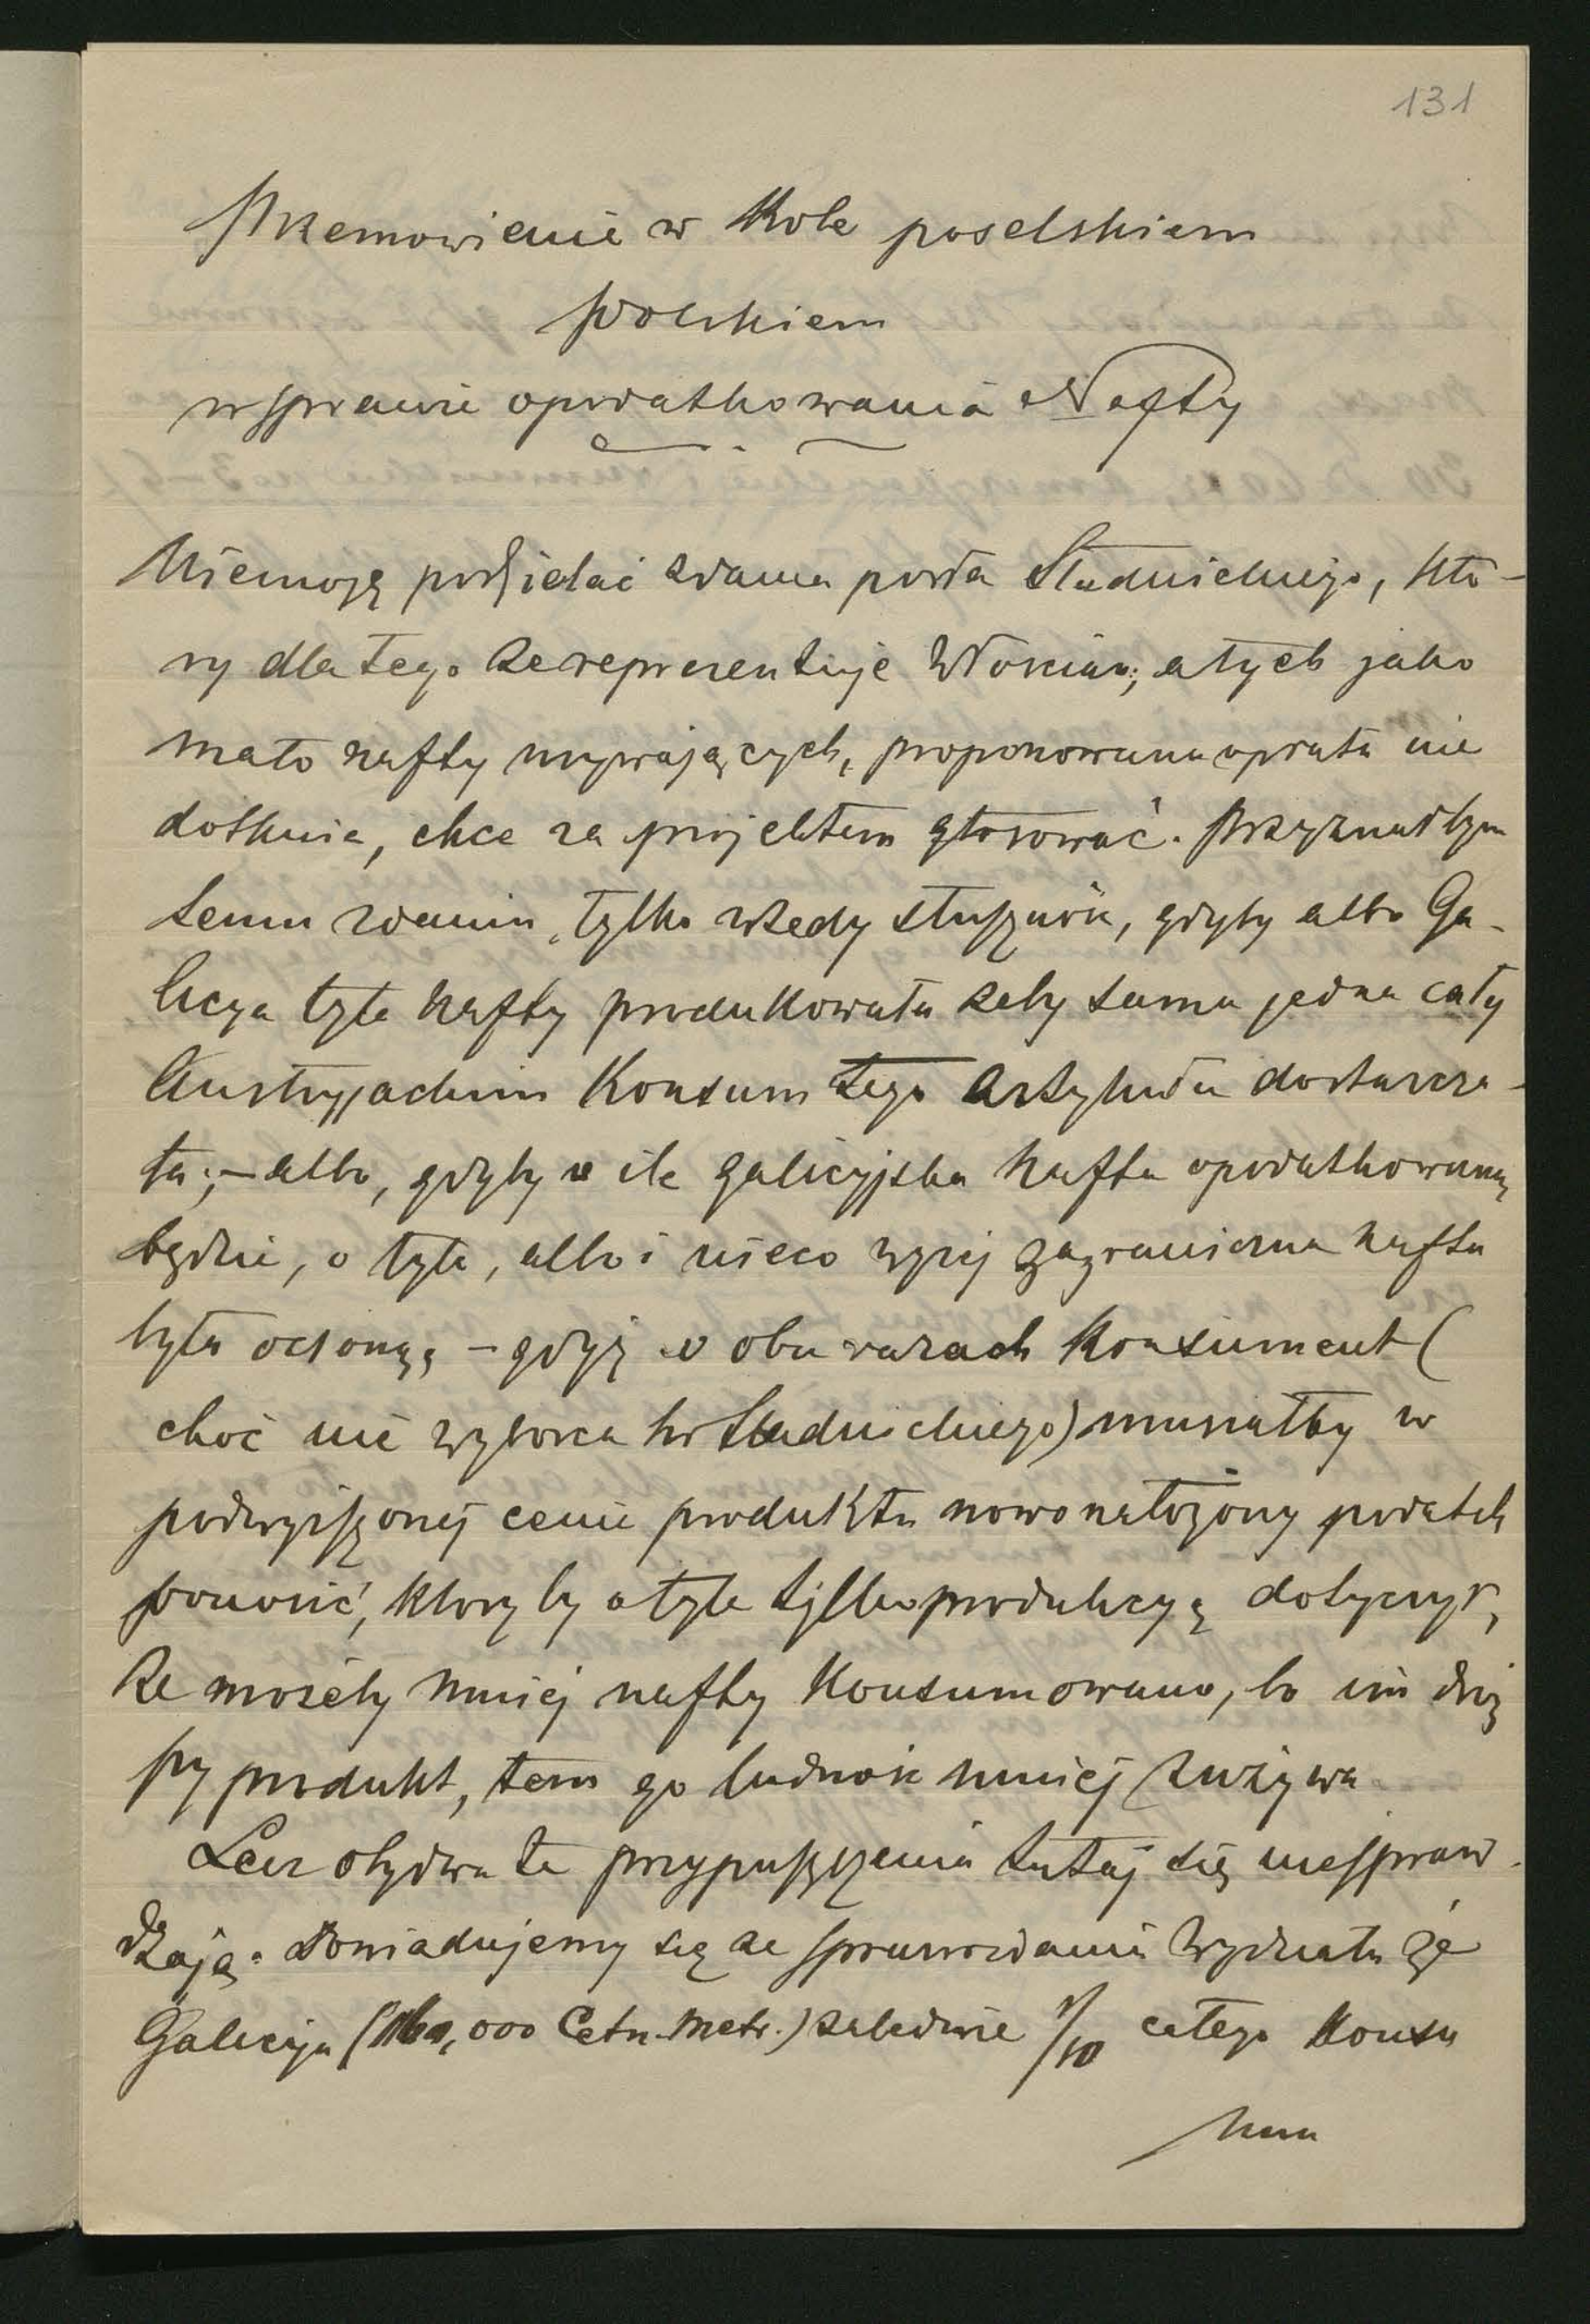 131
Przemowienie w Kole poselskiem
polskiem
w sprawie opodatkowania Nafty
Niemogę podzielać zdania posła Studnickiego, któ-
ry dla tego że reprezentuje Włościan, a tych jako
mało nafty używających, proponowana opłata nie
dotknie, chce za projektem głosować. Przyznałbym
temu zdaniu, tylko wtedy słuszność, gdyby albo Ga-
licya tyle nafty produkowała żeby sama jedna cały
Austryjacki Konsum tego artykułu dostarcza-
ła; – albo, gdyby o ile galicyjska nafta opodatkowaną
będzie, o tyle, albo i nieco wyżej zagraniczna nafta
była ocloną, – gdyż w obu razach Konsument (
choć nie wyborca hr Studnickiego) musiałby w
podwyższonej cenie produktu nowo nałożony podatek
ponosić, któryby o tyle tylko produkcyą dotyczył,
że możeby mniej nafty Konsumowano, bo im droż
szy produkt, tem go ludność mniej zużywa.
Lecz obydwa te przypuszczenia tutaj się niespraw
dzają. Dowiadujemy się ze sprawozdania Wydziału że
Galicyja ( ,000 Cetn. Metr.) zaledwie 1/10 całego Konsu
mu